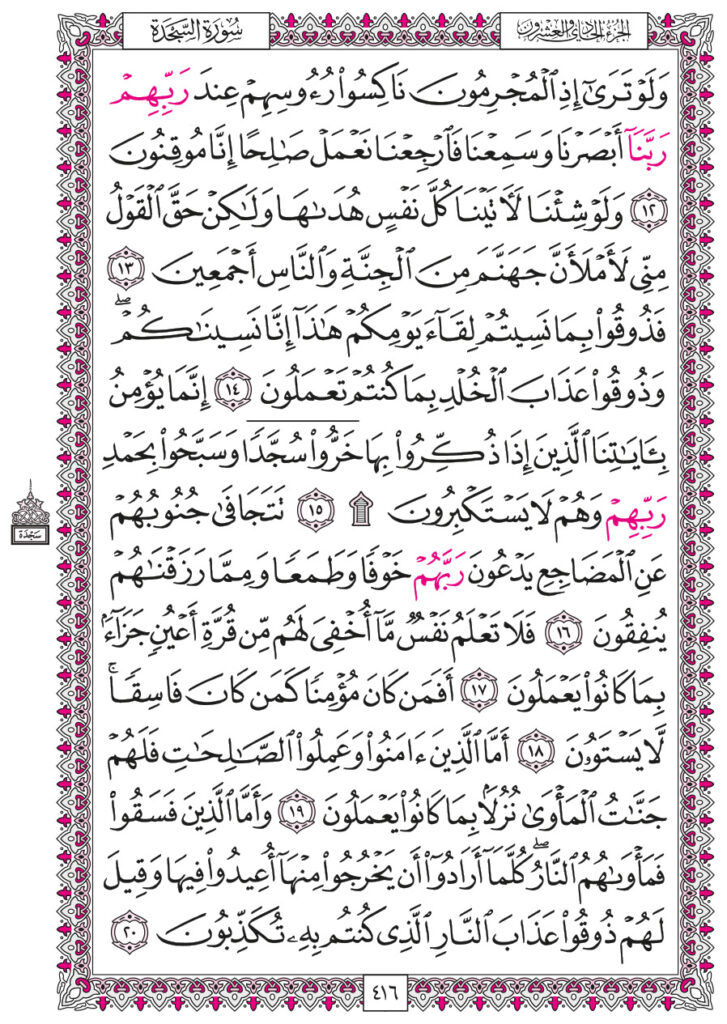 سُورَةُ السَّجْدَة
الجزء الحادي والعشرون
وَلَوْ تَرَىٰٓ إِذِ ٱلْمُجْرِمُونَ نَاكِسُوا۟ رُءُوسِهِمْ عِندَ رَبِّهِمْ
رَبَّنَآ أَبْصَرْنَا وَسَمِعْنَا فَٱرْجِعْنَا نَعْمَلْ صَٰلِحًا إِنَّا مُوقِنُونَ
١٢ وَلَوْ شِئْنَا لَءَاتَيْنَا كُلَّ نَفْسٍ هُدَىٰهَا وَلَٰكِنْ حَقَّ ٱلْقَوْلُ
مِنِّى لَأَمْلَأَنَّ جَهَنَّمَ مِنَ ٱلْجِنَّةِ وَٱلنَّاسِ أَجْمَعِينَ ١٣
فَذُوقُوا۟ بِمَا نَسِيتُمْ لِقَآءَ يَوْمِكُمْ هَٰذَآ إِنَّا نَسِينَٰكُمْ ۖ
وَذُوقُوا۟ عَذَابَ ٱلْخُلْدِ بِمَا كُنتُمْ تَعْمَلُونَ ١٤ إِنَّمَا يُؤْمِنُ
بِـَٔايَٰتِنَا ٱلَّذِينَ إِذَا ذُكِّرُوا۟ بِهَا خَرُّوا۟ سُجَّدًا وَسَبَّحُوا۟ بِحَمْدِ
رَبِّهِمْ وَهُمْ لَا يَسْتَكْبِرُونَ ۩ ١٥ تَتَجَافَىٰ جُنُوبُهُمْ
سَجْدَة
عَنِ ٱلْمَضَاجِعِ يَدْعُونَ رَبَّهُمْ خَوْفًا وَطَمَعًا وَمِمَّا رَزَقْنَٰهُمْ
يُنفِقُونَ ١٦ فَلَا تَعْلَمُ نَفْسٌ مَّآ أُخْفِىَ لَهُم مِّن قُرَّةِ أَعْيُنٍ جَزَآءًۢ
بِمَا كَانُوا۟ يَعْمَلُونَ ١٧ أَفَمَن كَانَ مُؤْمِنًا كَمَن كَانَ فَاسِقًا ۚ
لَّا يَسْتَوُۥنَ ١٨ أَمَّا ٱلَّذِينَ ءَامَنُوا۟ وَعَمِلُوا۟ ٱلصَّٰلِحَٰتِ فَلَهُمْ
جَنَّٰتُ ٱلْمَأْوَىٰ نُزُلًۢا بِمَا كَانُوا۟ يَعْمَلُونَ ١٩ وَأَمَّا ٱلَّذِينَ فَسَقُوا۟
فَمَأْوَىٰهُمُ ٱلنَّارُ ۖ كُلَّمَآ أَرَادُوٓا۟ أَن يَخْرُجُوا۟ مِنْهَآ أُعِيدُوا۟ فِيهَا وَقِيلَ
لَهُمْ ذُوقُوا۟ عَذَابَ ٱلنَّارِ ٱلَّذِى كُنتُم بِهِۦ تُكَذِّبُونَ ٢٠
٤١٦